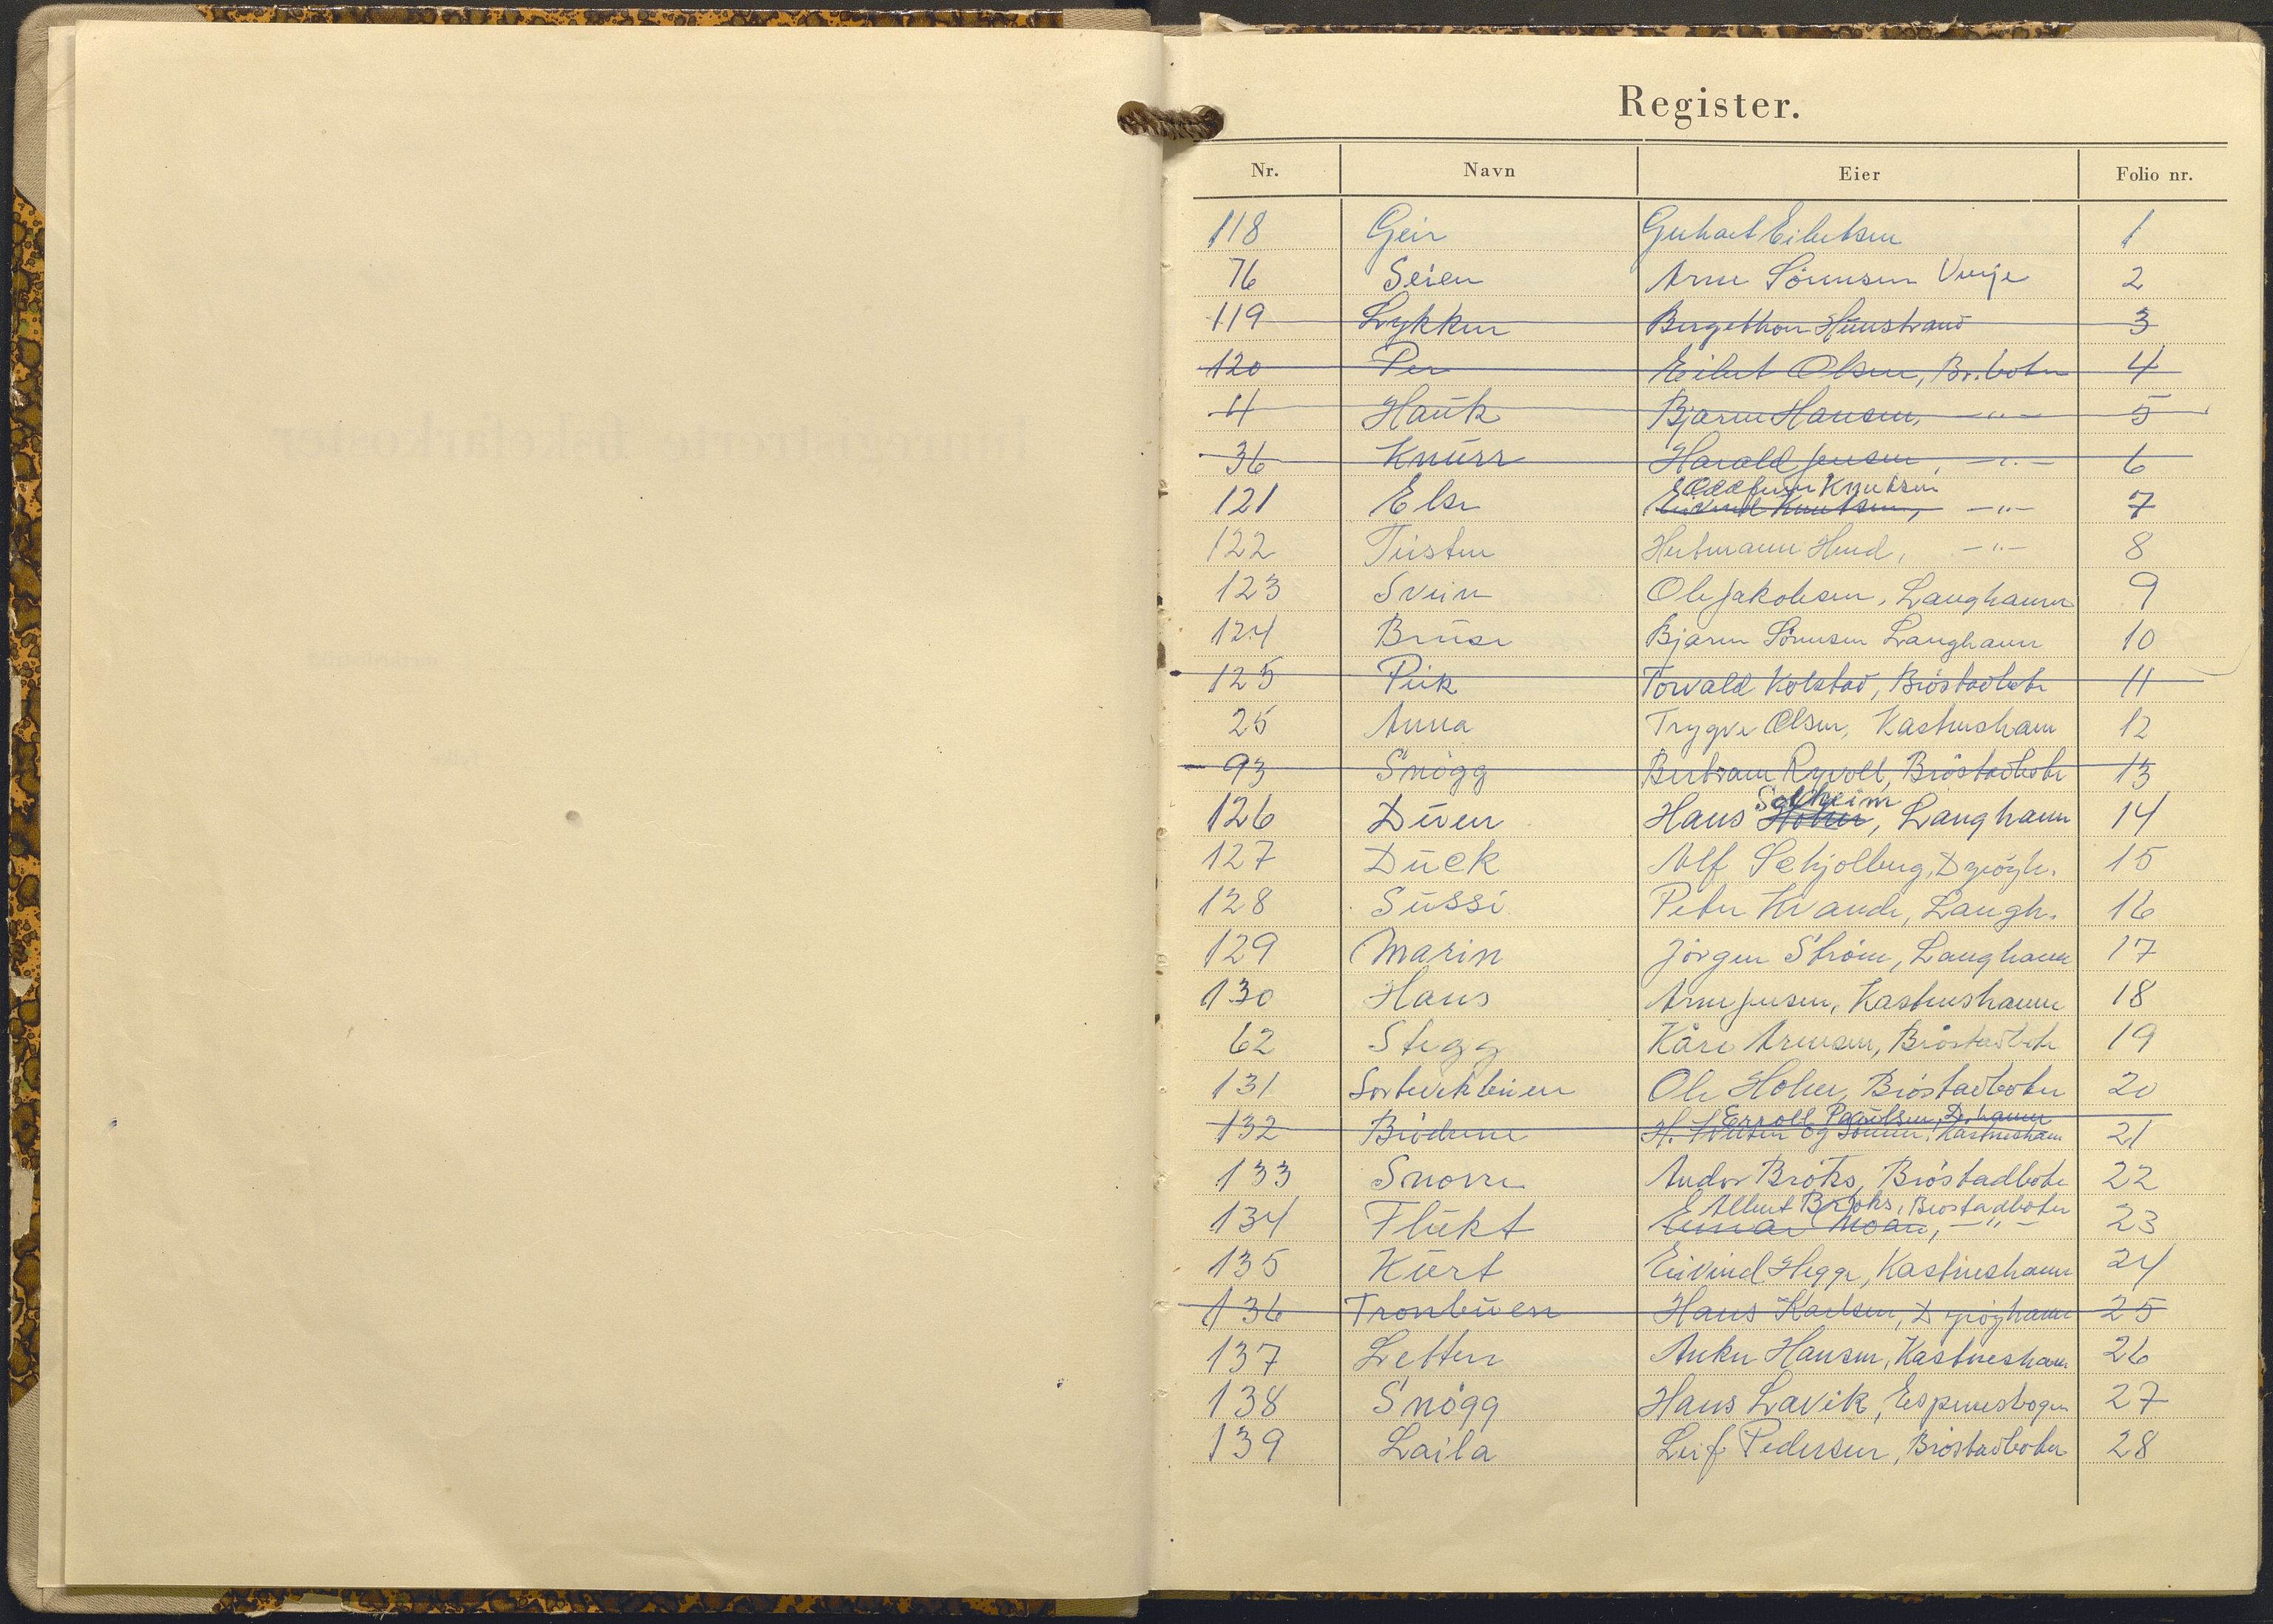 Register.
Nr. Navn Eier Folio nr.
118 Geir Gerhart Eilertsen 1
76 Seien Arne Sörensen Verje 2
119 Lykken Bergethon Finnstrand 3
120 Per Eilert Olsen, Br.botn 4
4 Hauk Bjarne Hansen, -"- 5
36 Knurr Harald Jensen, -"- 6
Oddfinn Knutsen
121 Else Eidind Knutsen, -"- 7
122 Teisten Hertmann Hend, -"- 8
123 Svein Ole Jakobsen, Langhamn 9
124 Bruse Bjarne Sörensen Langhamn 10
125 Pük Torvald Kolstad, Bröstadbotn 11
25 Anna Trygve Olsen, Kastneshamn 12
93 Snögg Bertram Ryvoll, Bröstadbotn 13
Solheim
126 Duen Hans Holm, Langhamn 14
127 Duck Alf Schjolberg, Dyrögh. 15
128 Sussi Peter Kvande, Langh. 16
129 Marin Jörgen Ström, Langhamn 17
130 Hans Arne Jensen, Kastneshamn 18
62 Stegg Kåre Arnesen, Bröstadbotn 19
131 Sortevikbuen Ole Holm, Bröstadbotn 20
Erroll Paulsen, D.hamn
132 Brödrene H. og Sönner, Kastnesham 21
133 Snorre Andor Broks, Bröstadbotn 22
Albert Broks, Bröstadbotn
134 Flukt Einar Moan, -"- 23
135 Kurt Eivind Hegge, Kastneshamn 24
136 Tronbuen Hans Karlsen, Dyröyhamn 25
137 Letten Anker Hansen, Kastneshamn 26
138 Snögg Hans Lavik, Espenesbogen 27
139 Laila Leif Pedersen, Bröstadbotn 28